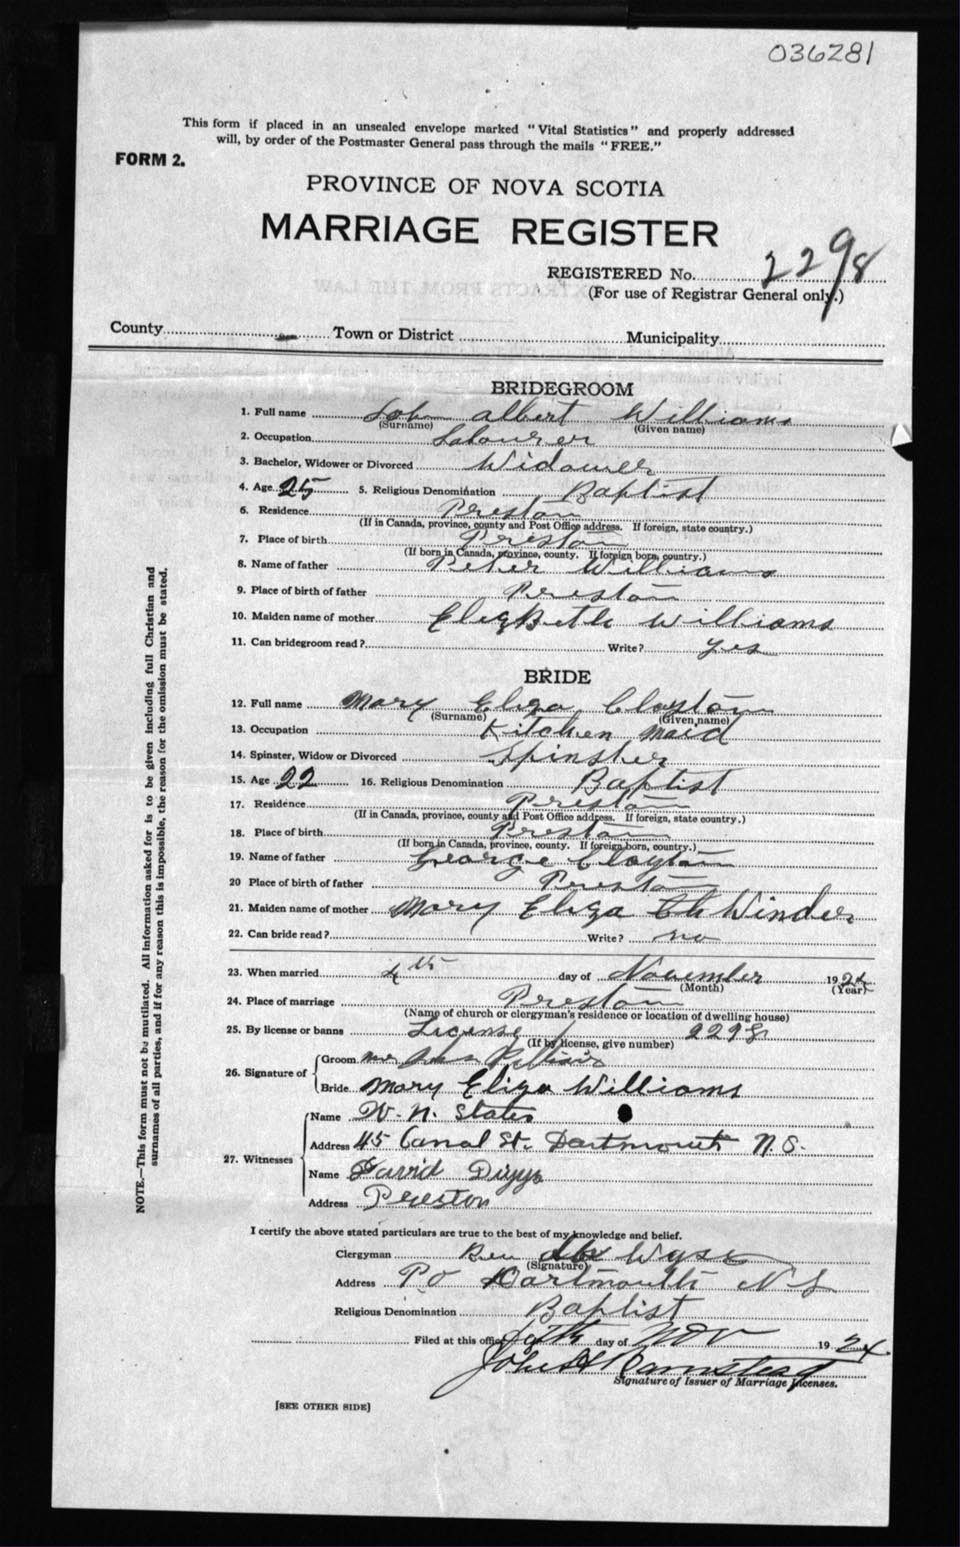 036281
This form if placed in an unsealed envelope marked "Vital Statistics" and properly addressed
will, by order of the Postmaster General pass through the mails "FREE."
FORM 2.
PROVINCE OF NOVA SCOTIA
MARRIAGE REGISTER
REGISTERED No. 2298
(For use of Registrar General only.)
County Town or District Municipality
BRIDEGROOM
1. Full name John Albert Williams
(Surname) (Given name)
2. Occupation Labourer
3. Bachelor, Widower or Divorced Widower
4. Age 25 5. Religious Denomination Baptist
6. Residence Preston
(If in Canada, province, county and Post Office address. If foreign, state country.)
7. Place of birth Preston
(If born in Canada, province, county. If foreign born, country.)
8. Name of father Peter Williams
9. Place of birth of father Preston
10. Maiden name of mother ElizBeth Williams
11. Can bridegroom read? Write? yes
BRIDE
12. Full name Mary Eliza Clayton
(Surname) (Given name)
13. Occupation Kitchen Maid
14. Spinster, Widow or Divorced Spinster
15. Age 22 16. Religious Denomination Baptist
17. Residence Preston
(If in Canada, province, county and Post Office address. If foreign, state country.)
18. Place of birth Preston
(If born in Canada, province, county. If foreign born, country.)
19. Name of father George Clayton
20 Place of birth of father Preston
21. Maiden name of mother Mary Eliza Winder
22. Can bride read? Write? no
23. When married 4th day of November 1924
(Month) (Year)
24. Place of marriage Preston
(Name of church or clergyman's residence or location of dwelling house)
25. By license or banns License 2298
(If by license, give number)
26. Signature of Groom Mr John
Bride Mary Eliza Williams
27. Witnesses Name W. N. States
Address 45 Canal St. Dartmouth N.S.
Name David Diggs
Address Preston
I certify the above stated particulars are true to the best of my knowledge and belief.
Clergyman Wyse
(Signature)
Address P O Dartmouth N S
Religious Denomination Baptist
Filed at this office day of Nov 1924
John
Signature of Issuer of Marriage Licenses.
[SEE OTHER SIDE]
NOTE.—This form must not be mutilated. All information asked for is to be given including full Christian and
surnames of all parties, and if for any reason this is impossible, the reason for the omission must be stated.